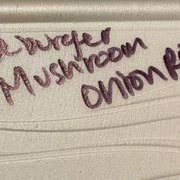 Larger
Mushroom
Onion Ri